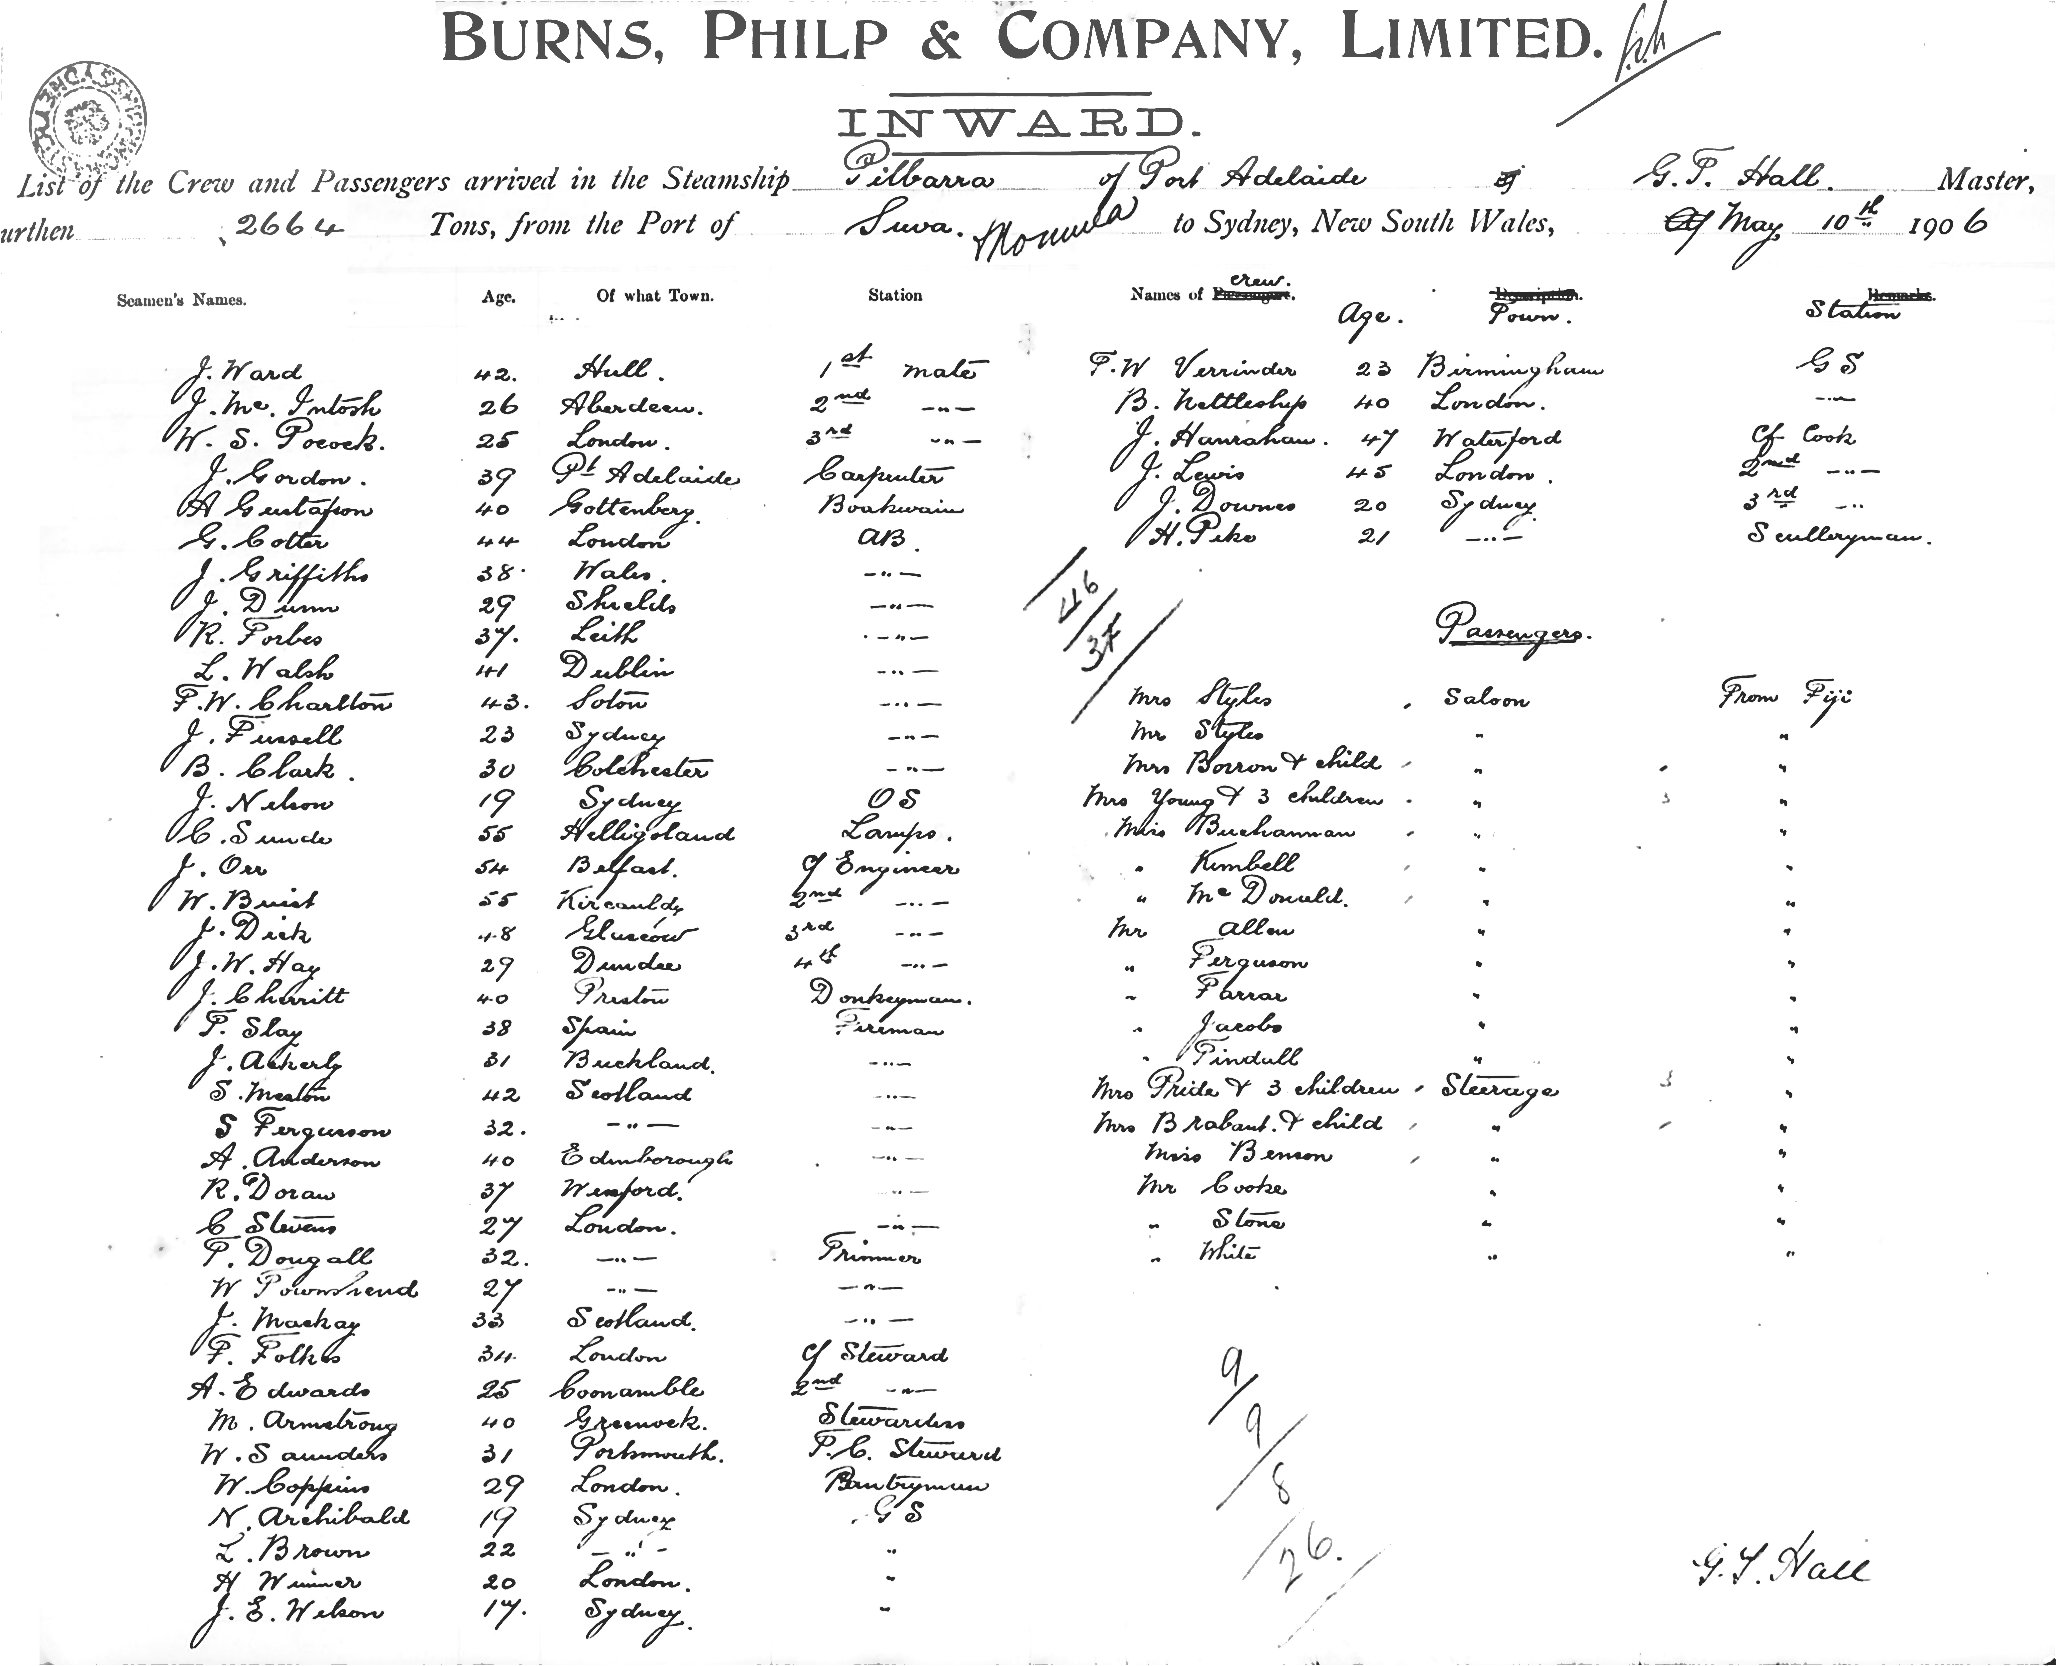 BURNS, PHILP & COMPANY, LIMITED.
INWARD.
List of the Crew and Passengers arrived in the Steamship Pilbarra of Port Adelaide of G. T. Hall. Master,
urthen 2664 Tons, from the Port of Suva. to Sydney, New South Wales, May 10th 1906
Seamen's Names. Age. Of what Town. Station
J. Ward 42. Hull. 1st mate
J. Mc. Intosh 26 Aberdeen. 2nd -"-
W. S. Pocock. 25 London. 3rd -"-
J. Gordon. 39 Pt Adelaide Carpenter
A Gustafson 40 Gottenberg. Boatswain
G. Cotter 44 London AB.
J. Griffiths 38 Wales. -"-
J. Dunn 29 Shields -"-
R. Forbes 37. Leith -"-
L. Walsh 41 Dublin -"-
F. W. Charlton 43. Soton -"-
J. Fussell 23 Sydney -"-
B. Clark. 30 Colchester -"-
J. Nelson 19 Sydney OS
C. Sunde 55 Helligoland Lamps.
J. Orr 54 Belfast. Cf Engineer
W. Buist 55 Kircauldy 2nd -"-
J. Dick 48 Glascow 3rd -"-
J. W. Hay 29 Dundee 4th -"-
J. Cherritt 40 Preston Donkeyman.
F. Slay 38 Spain Fireman
J. Ackerly 31 Buckland. -"-
S. Meston 42 Scotland -"-
S Fergusson 32. -"- -"-
A. Anderson 40 Edinborough -"-
R. Doran 37 Wexford. -"-
C Stevens 27 London. -"-
P. Dougall 32. -"- Trimmer
W Townshend 27 -"- -"-
J. Mackay 33 Scotland. -"-
F. Folkes 34 London Cf Steward
A. Edwards 25 Coonamble 2nd -"-
M. Armstrong 40 Greenock. Stewardess
W. Saunders 31 Portsmouth. F. C. Steward
W. Coppins 29 London. Pantryman
N. Archibald 19 Sydney GS
L. Brown 22 -"- "
H Winner 20 London. "
J. E. Wilson 17. Sydney. "
Names of crew. Age. Town. Station
F. W Verrinder 23 Birmingham GS
B. Nettleship 40 London. -"-
J. Hanrahan. 47 Waterford Cf Cook
J. Lewis 45 London. 2nd -"-
J. Downes 20 Sydney 3rd -"-
H. Pike 21 -"- Sculleryman.
46
37
Passengers.
Mrs Styles Saloon From Fiji
Mr Styles " "
Mrs Borron & child " "
Mrs Young & 3 children " 3 "
Miss Buchannan " "
" Kimbell " "
" Mc Donald. " "
Mr Allen " "
" Ferguson " "
" Farrar " "
" Jacobs " "
" Tindall " "
Mrs Pride & 3 children Steerage 3 "
Mrs Brabant. & child " "
Miss Benson " "
Mr Cooke " "
" Stone " "
" White " "
9
9
8
26.
G. T. Hall